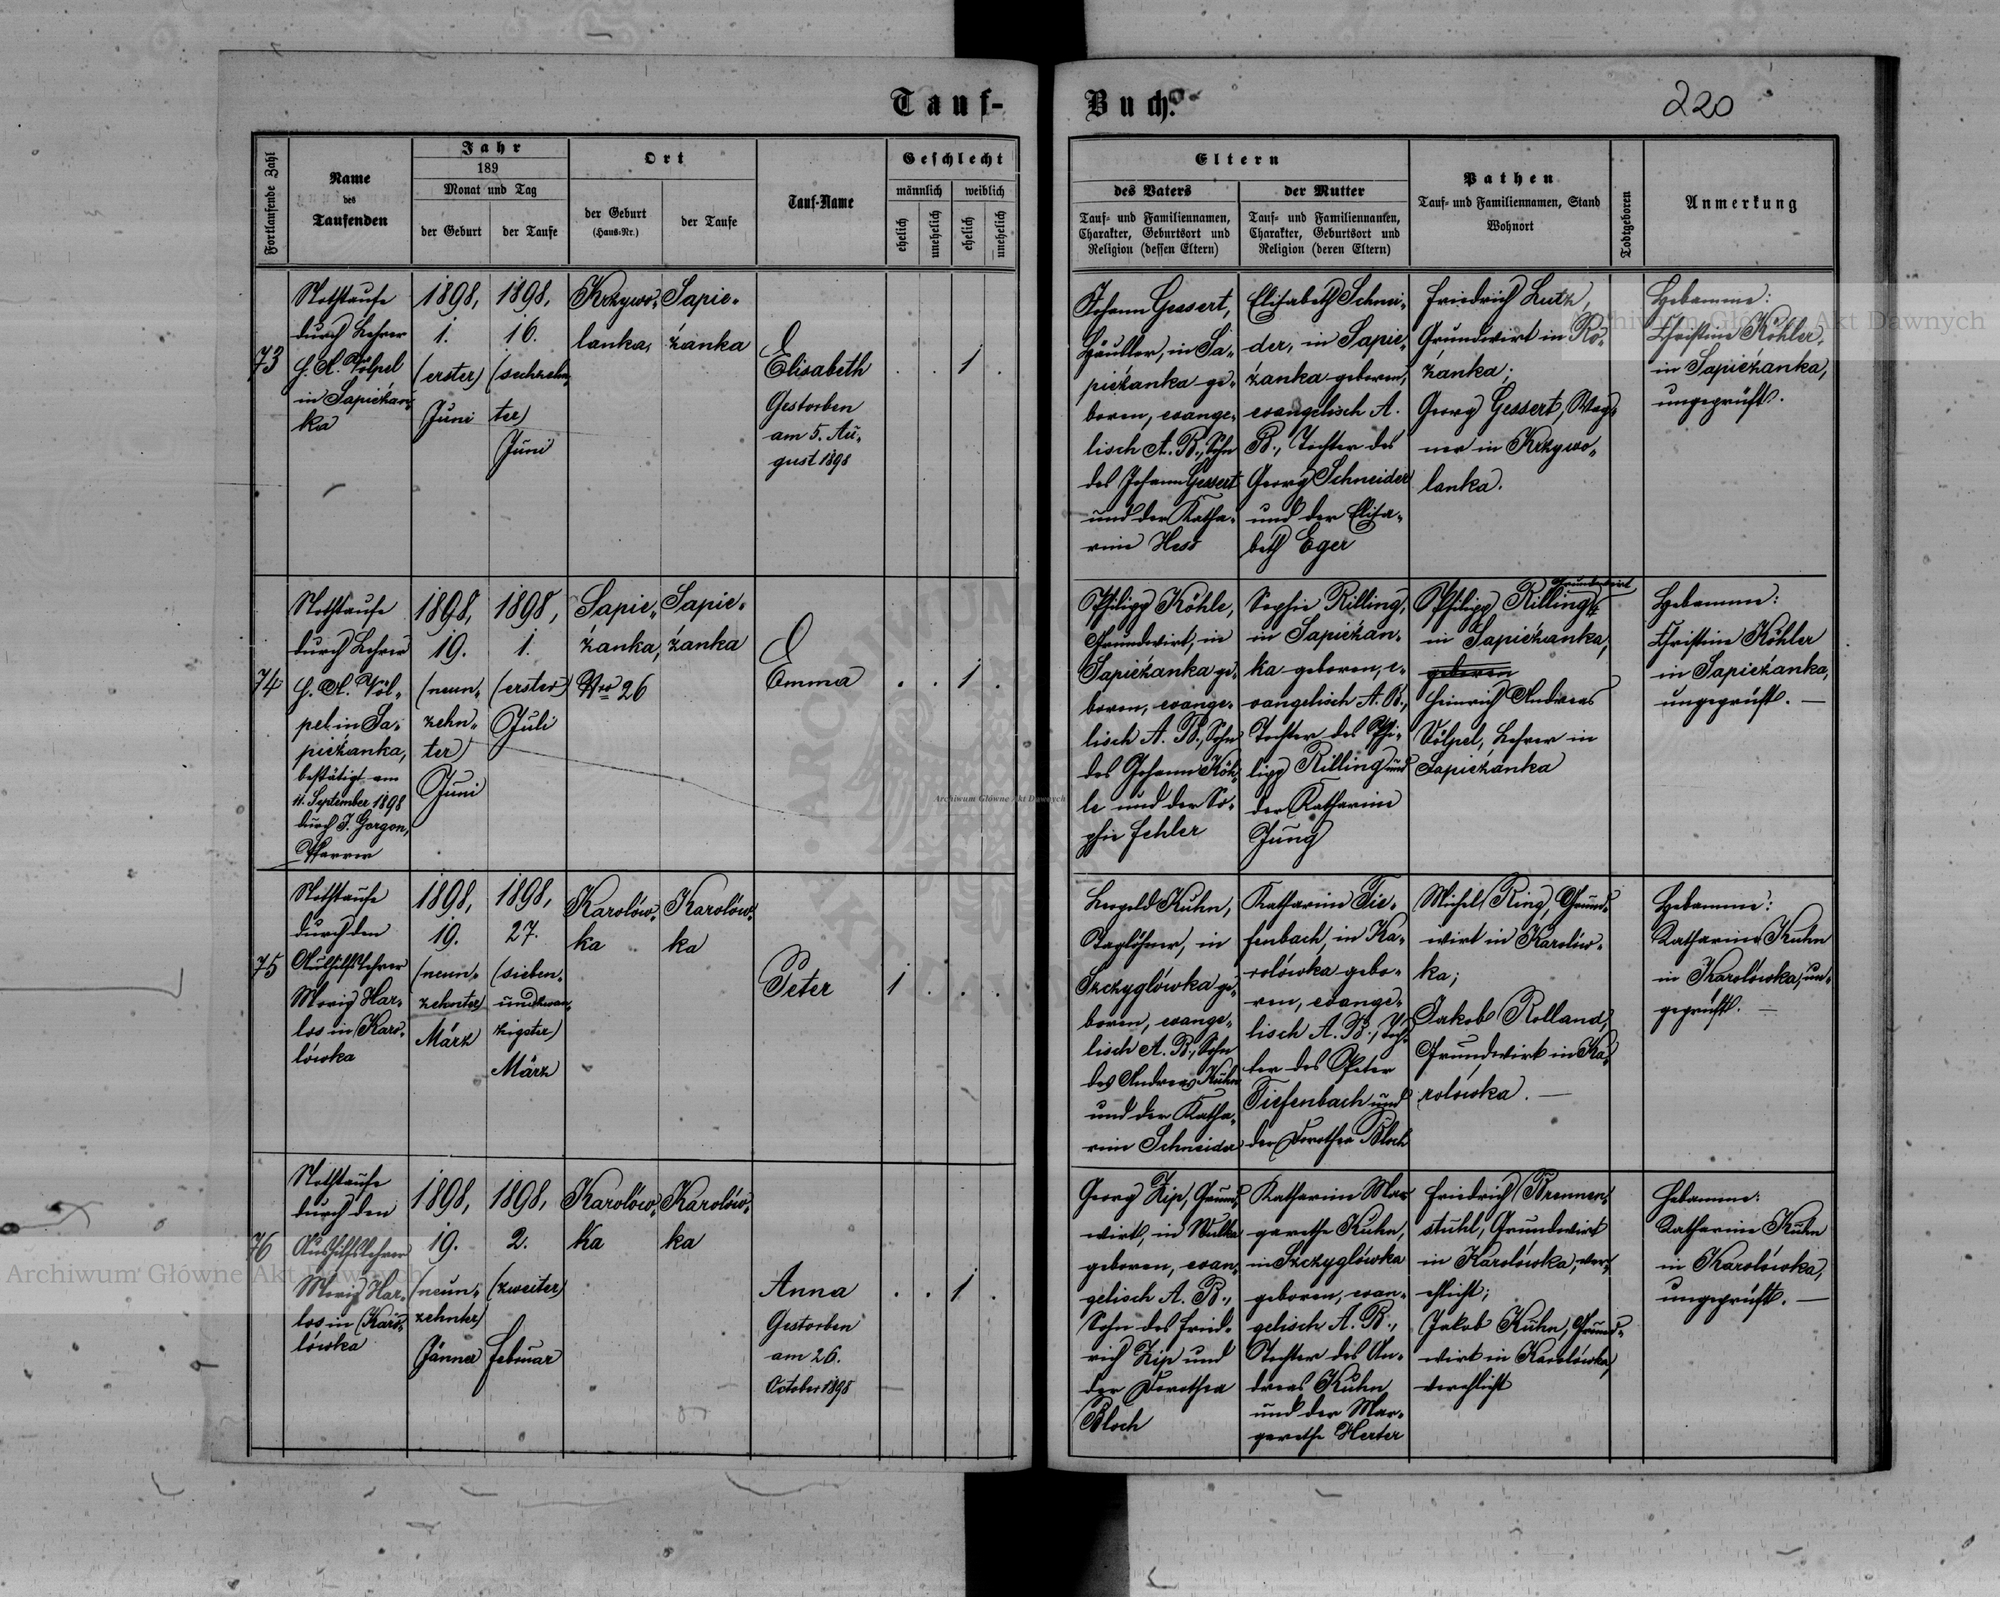 Tauf-
Buch.
220
Fortlaufende Zahl
Name
des
Taufenden
Jahr
189
Monat und Tag
der Geburt
der Taufe
Ort
der Geburt
(Haus-Nr.)
der Taufe
Tauf-Name
Geschlecht
männlich
weiblich
ehelich
unehelich
ehelich
unehelich
Eltern
des Vaters
Tauf- und Familiennamen,
Charakter, Geburtsort und
Religion (dessen Eltern)
der Mutter
Tauf- und Familiennamen,
Charakter, Geburtsort und
Religion (deren Eltern)
Pathen
Tauf- und Familiennamen, Stand
Wohnort
Todtgeboren
Anmerkung
73
Nothtaufe
durch Lehrer
H. A. Völpel
in Sapieżan-
ka
1898,
1.
(erster)
Juni
1898,
16.
(sechzehn-
ter)
Juni
Krzywo-
lanka,
Sapie-
żanka
Elisabeth
Gestorben
am 5. Au-
gust 1898
1
Johann Gessert,
Häusler, in Sa-
pieżanka ge-
boren, evange-
lisch A. B., Sohn
des Johann Gessert
und der Katha-
rine Hess
Elisabeth Schnei-
der, in Sapie-
żanka geboren,
evangelisch A.
B., Tochter des
Georg Schneider
und der Elisa-
beth Eger
Friedrich Lutz,
Grundwirt in Ro-
żanka;
Georg Gessert, Wag-
ner in Krzywo-
lanka.
Hebamme:
Christine Köhler,
in Sapieżanka,
ungeprüft.
74
Nothtaufe
durch Lehrer
H. A. Völ-
pel in Sa-
pieżanka,
bestätigt am
11. September 1898
durch J. Gorgon,
Pfarrer
1898,
19.
(neun-
zehn-
ter)
Juni
1898,
1.
(erster)
Juli
Sapie-
żanka,
Nro 26
Sapie-
żanka
Emma
1
Philipp Köhle,
Grundwirt, in
Sapieżanka ge-
boren, evange-
lisch A. B., Sohn
des Johann Köh-
le und der So-
phie Fehler
Sophie Rilling,
in Sapieżan-
ka geboren, e-
vangelisch A. B.,
Tochter des Phi-
lipp Rilling und
der Katharine
Jung
Grundwirt
Philipp Rilling,
in Sapieżanka,
geboren
Heinrich Andreas
Völpel, Lehrer in
Sapieżanka
Hebamme:
Christine Köhler
in Sapieżanka,
ungeprüft. —
75
Nothtaufe
durch den
Aushilfslehrer
Moriz Har-
los in Karo-
lówka
1898,
19.
(neun-
zehnter)
März
1898,
27.
(sieben-
undzwan-
zigster)
März
Karolów-
ka
Karolów-
ka
Peter
1
Leopold Kuhn,
Taglöhner, in
Szczyglówka ge-
boren, evange-
lisch A. B., Sohn
des Andreas Kuhn
und der Katha-
rine Schneider
Katharine Tie-
fenbach, in Ka-
rolówka gebo-
ren, evange-
lisch A. B., Toch-
ter des Peter
Tiefenbach und
der Dorothea Bloch
Michel Ring, Grund-
wirt in Karolów-
ka;
Jakob Rolland,
Grundwirt in Ka-
rolówka. —
Hebamme:
Katharine Kuhn
in Karolówka, un-
geprüft. —
76
Nothtaufe
durch den
Aushilfslehrer
Moriz Har-
los in Karo-
lówka
1898,
19.
(neun-
zehnter)
Jänner
1898,
2.
(zweiter)
Februar
Karolów-
ka
Karolów-
ka
Anna
Gestorben
am 26.
October 1898
1
Georg Zip, Grund-
wirt, in Wulka
geboren, evan-
gelisch A. B.,
Sohn des Fried-
rich Zip und
der Dorothea
Bloch
Katharine Mar-
garethe Kuhn,
in Szczyglówka
geboren, evan-
gelisch A. B.,
Tochter des An-
dreas Kuhn
und der Mar-
garethe Herter
Friedrich Brennen-
stuhl, Grundwirt
in Karolówka, ver-
ehlicht;
Jakob Kuhn, Grund-
wirt in Karolówka,
verehlicht
Hebamme:
Katharine Kuhn
in Karolówka,
ungeprüft. —
Archiwum Główne Akt Dawnych
Archiwum Główne Akt Dawnych
Archiwum Główne Akt Dawnych